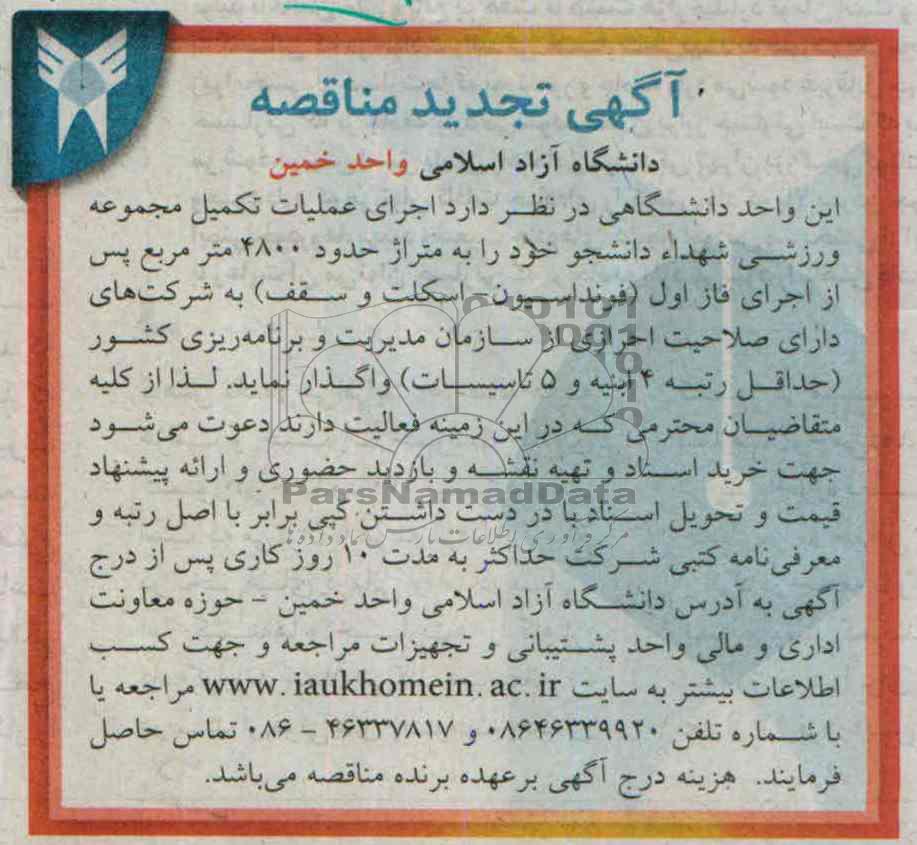 آگهی تجدید مناقصه
دانشگاه آزاد اسلامی واحد خمین
این واحد دانشگاهی در نظر دارد اجرای عملیات تکمیل مجموعه
ورزشی شهداء دانشجو خود را به متراژ حدود ۴۸۰۰ متر مربع پس
از اجرای فاز اول (فونداسیون- اسکلت و سقف) به شرکت‌های
دارای صلاحیت احرازی از سازمان مدیریت و برنامه‌ریزی کشور
(حداقل رتبه ۴ ابنیه و ۵ تاسیسات) واگذار نماید. لذا از کلیه
متقاضیان محترمی که در این زمینه فعالیت دارند دعوت می‌شود
جهت خرید اسناد و تهیه نقشه و بازدید حضوری و ارائه پیشنهاد
ParsNamadData
قیمت و تحویل اسناد با در دست داشتن کپی برابر با اصل رتبه و
معرفی‌نامه کتبی شرکت حداکثر به مدت ۱۰ روز کاری پس از درج
آگهی به آدرس دانشگاه آزاد اسلامی واحد خمین - حوزه معاونت
اداری و مالی واحد پشتیبانی و تجهیزات مراجعه و جهت کسب
اطلاعات بیشتر به سایت www.iaukhomein.ac.ir مراجعه یا
با شماره تلفن ۰۸۶۴۶۳۳۹۹۲۰ و ۴۶۳۳۷۸۱۷ - ۰۸۶ تماس حاصل
فرمایند. هزینه درج آگهی برعهده برنده مناقصه می‌باشد.